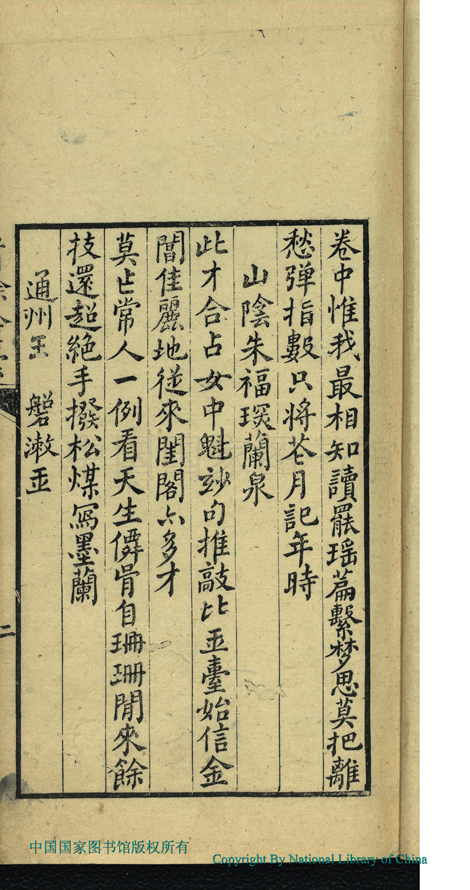 卷中惟我最相知讀罷瑶篇繫梦思莫把離
愁弹指數只將花月記年時
山陰朱福琰蘭泉
此才合占女中魁玅句推敲比玉臺始信金
閶佳麗地從來閨閣亦多才
莫占常人一例看天生僊骨自珊珊閒來餘
技還超絶手撥松煤寫墨蘭
通州王 磐漱玉
中国国家图书馆版权所有
Copyright By National Library of China